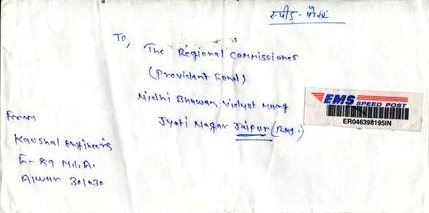 स्पीड-पोस्ट
To,
The Regional Commissioner
(Provident Fund)
Nidhi Bhawan, Vidyut Marg
Jyoti Nagar Jaipur (Raj.)
EMS SPEED POST
ER046398195IN
From
Kaushal Engineers
M.I.A.
Alwar 301030